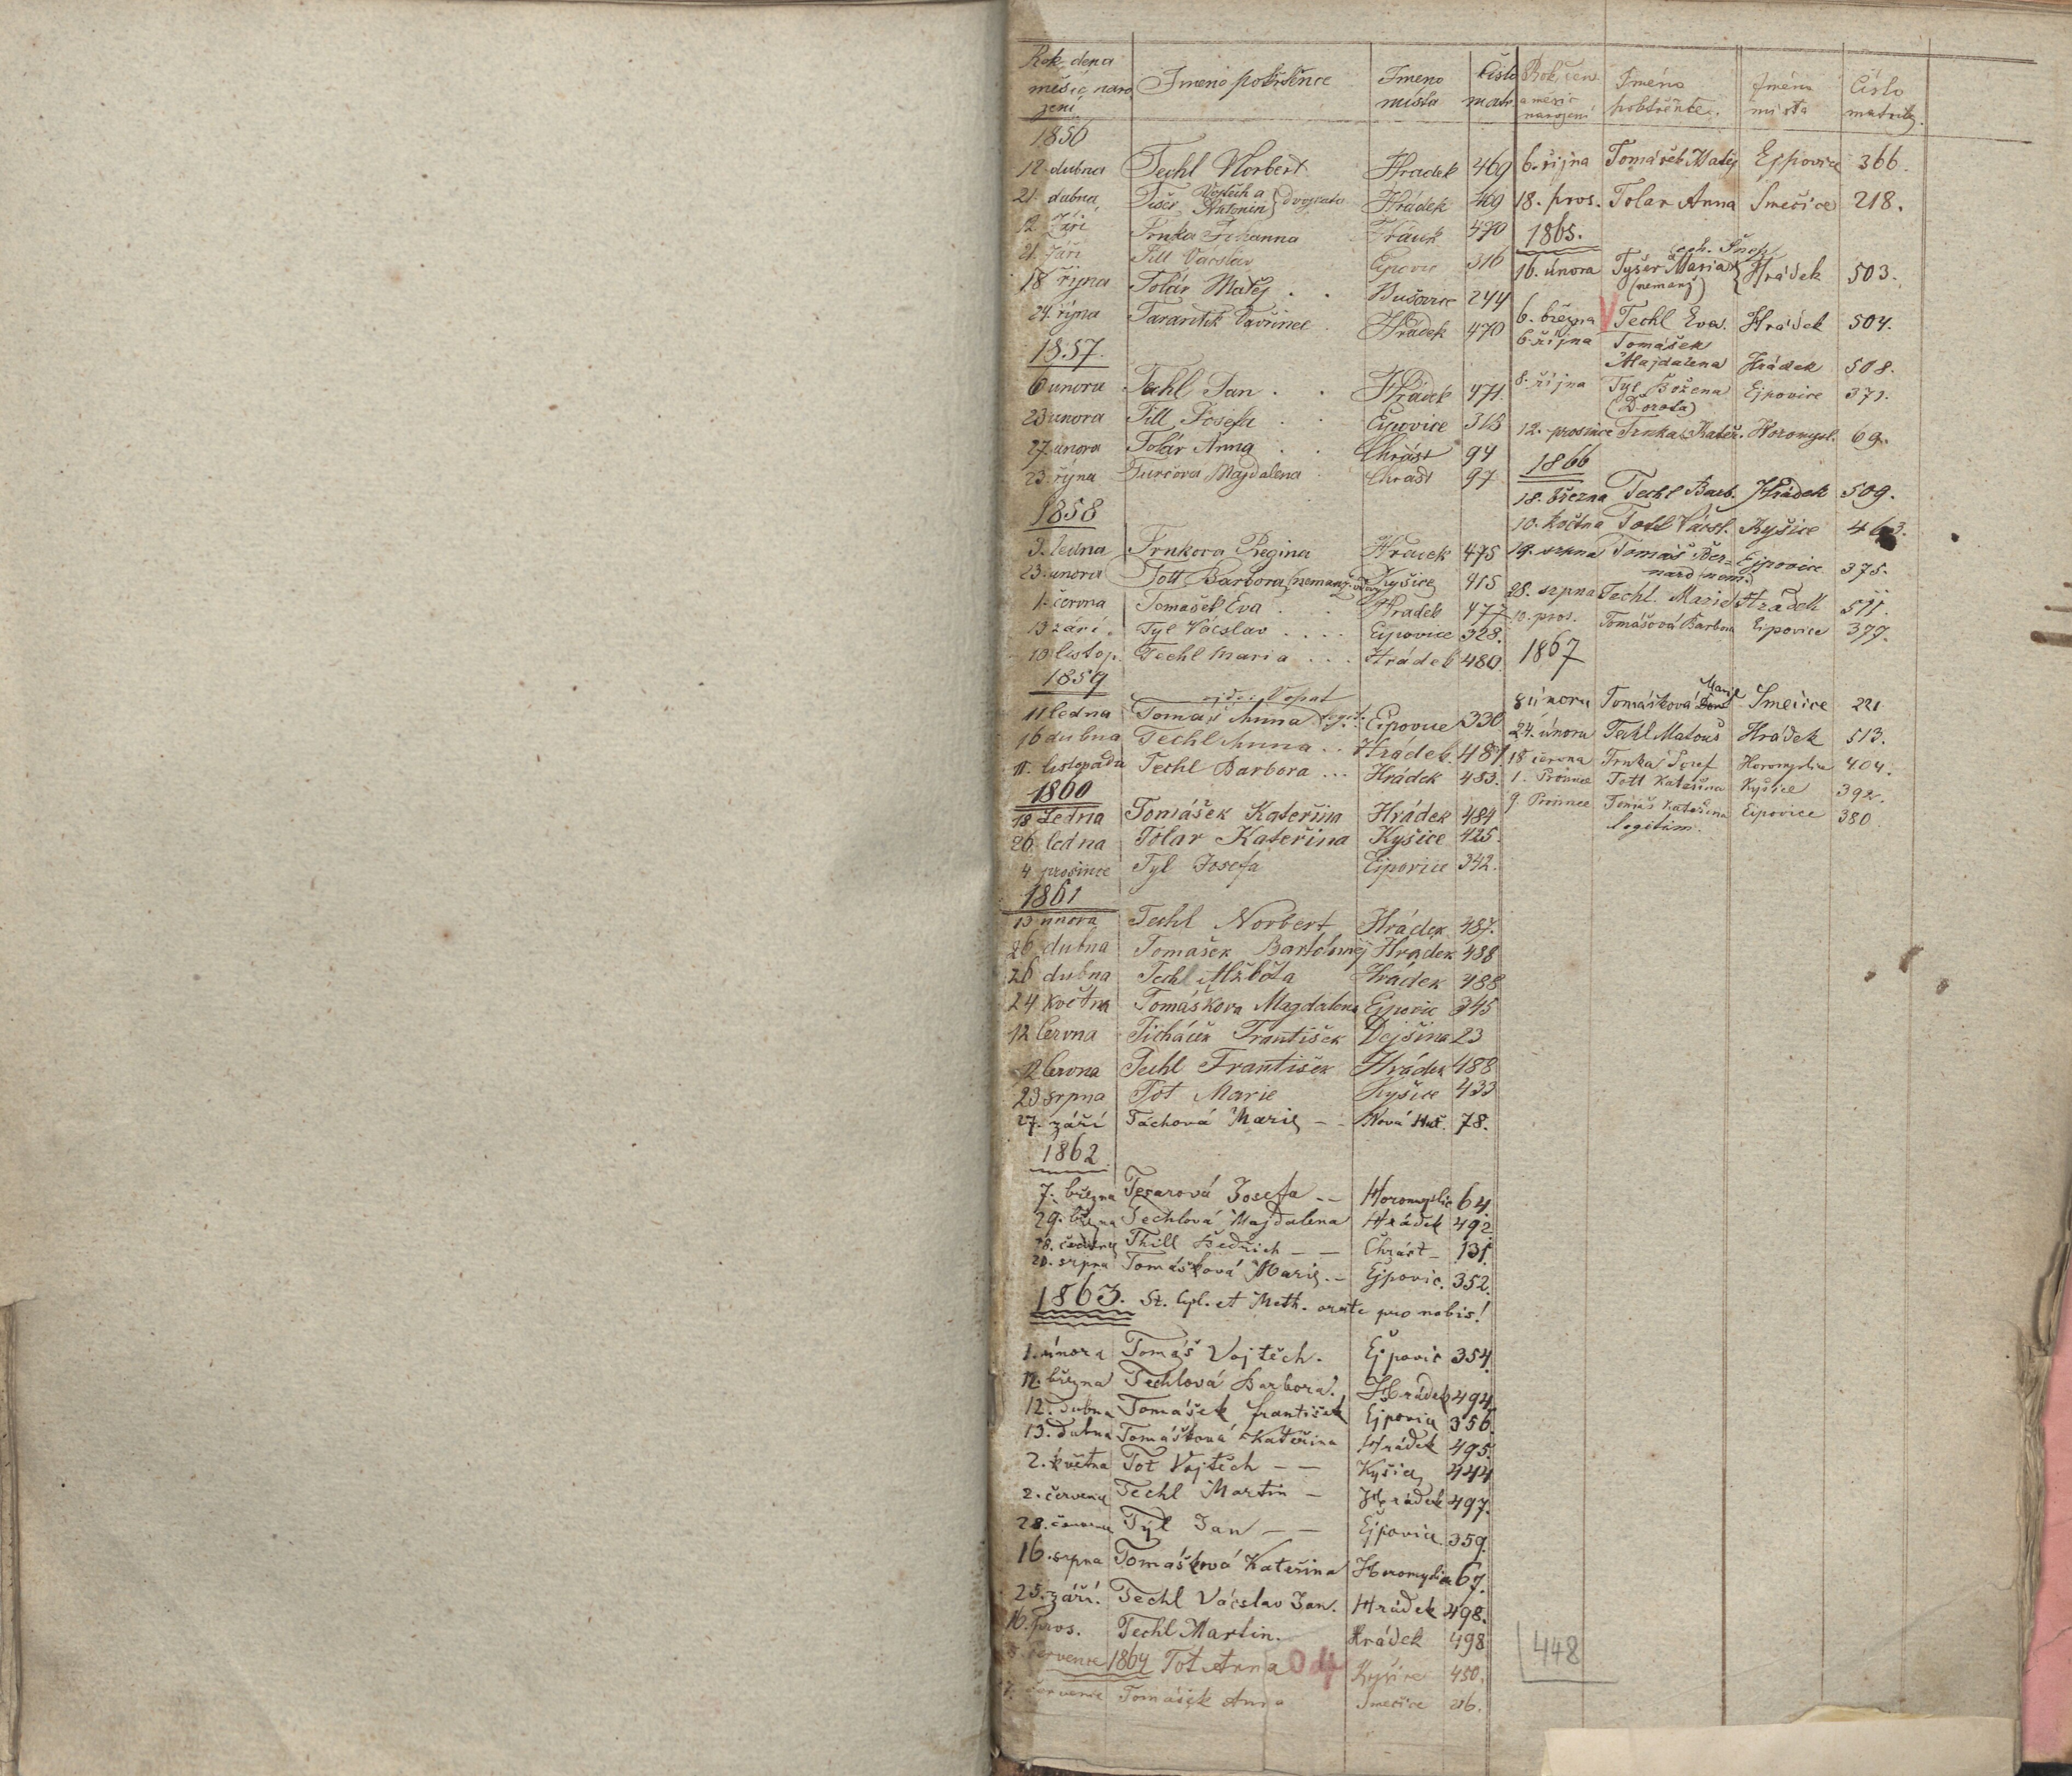 Rok, den a
měsíc naro
zení
Jmeno pokřtěnce
Jmeno
místa
Číslo
matr
1856
12. dubna Techl Norbert Hradek 469
21. dubna Tišer Vojtěch a Antonin } dvojčata Hrádek 469
12 Září Trnka Johanna Hrádek 470
21. Září Till Václav Eipovic 316
18 října Tolár Matěj . . Bušovic 244
24. října Tarantik Vavřinec Hrádek 470
1857.
6 unora Techl Jan . . Hrádek 471.
23 unora Till Josefa . . Eipovice 318
27. unora Tolár Anna . . Chrást 94
23. října Turčova Majdalena Chrást 97
1858
3. ledna Trnkova Regina Hradek 475
23. unora Tott Barbora (nemanž. Kyšice 415
1. června Tomašek Eva . . . Hradek 477
13 září. Tyl Vácslav . . . . Eipovice 328.
10 listop. Techl Maria . . . Hrádek 480.
1859
Vopat
11 ledna Tomaš Anna legit. Eipovice 330
16 dubna Techl Anna . . Hrádek. 481
11. listopadu Techl Barbora . . . Hrádek 483.
1860
18 Ledna Tomášek Kateřina Hrádek 484
26 ledna Tolar Kateřina Kyšice 425.
4 prosince Tyl Josefa Eipovice 342.
1861
13 unora Techl Norbert Hrádek 487.
26 dubna Tomašek Bartoloměj Hradek 488
26 dubna Techl Alžběta Hrádek 488
24 Května Tomáškova Magdalena Ejpovic 345
12 Června Ticháček František Dejšina 23
12 Června Techl František Hrádek 488
23 srpna Tot Marie Kyšice 433
27. září Táchová Marie – – Nová Huť. 78.
1862
7. března Tesarová Josefa – – Horomyslic 64.
29. března Techlová Majdalena Hrádek 492
Thill Bedřich – – Chrást – 131.
20. srpna Tomášková Marie. – Ejpovic. 352.
1863. St. Cyl. et Meth. orate pro nobis!
1. února Tomáš Vojtěch. Ejpovic 354.
12. března Techlová Barbora. Hrádek 494.
12. dubna Tomášek František Ejpovic 356.
13. dubna Tomášková Kateřina Hrádek 495.
2. května Tot Vojtěch – – Kyšic 444
2. června Techl Martin – Hrádek 497.
28. června Tyl Jan – – Ejpovic 359.
16. srpna Tomášková Kateřina Horomyslic 67.
25. září. Techl Vácslav Jan. Hrádek 498.
16. pros. Techl Martin. Hrádek 498
července 1864 Tot Anna Kyšice 450.
7. července Tomášek Anna Smečice 216.
Rok, den
a měsíc
narození
Jméno
pokřtěnce.
Jméno
místa
Číslo
matriky.
6. října Tomášek Matěj Ejpovice 366.
18. pros. Tolar Anna Smečice 218.
1865.
16. února Tyšer Maria (nemanž) Hrádek 503.
6. března V Techl Eva. Hrádek 504.
6. října Tomášek
Majdalena Hrádek 508.
8. října Tyl Božena Ejpovice 371.
(Dorota)
12. prosince Trnka Kateř. Horomysl. 69.
1866
18. března Techl Barb. Hrádek 509.
10. Května Tott Václ. Kyšice 463.
19. srpna Tomáš Ber= Ejpovice 375.
nard (nem.)
28. srpna Techl. Marie Hrádek 511.
10. pros. Tomášová Barbora Eipovice 377.
1867
8 únoru Tomášková Marie Smečice 221
24. únoru Techl Matouš Hrádek 513.
18 června Trnka Josef Horomyslice 404.
1. Prosince Tott Kateřina Kyšice 392.
9. Prosince Tomáš Kateřina Eipovice 380
legitim.
448